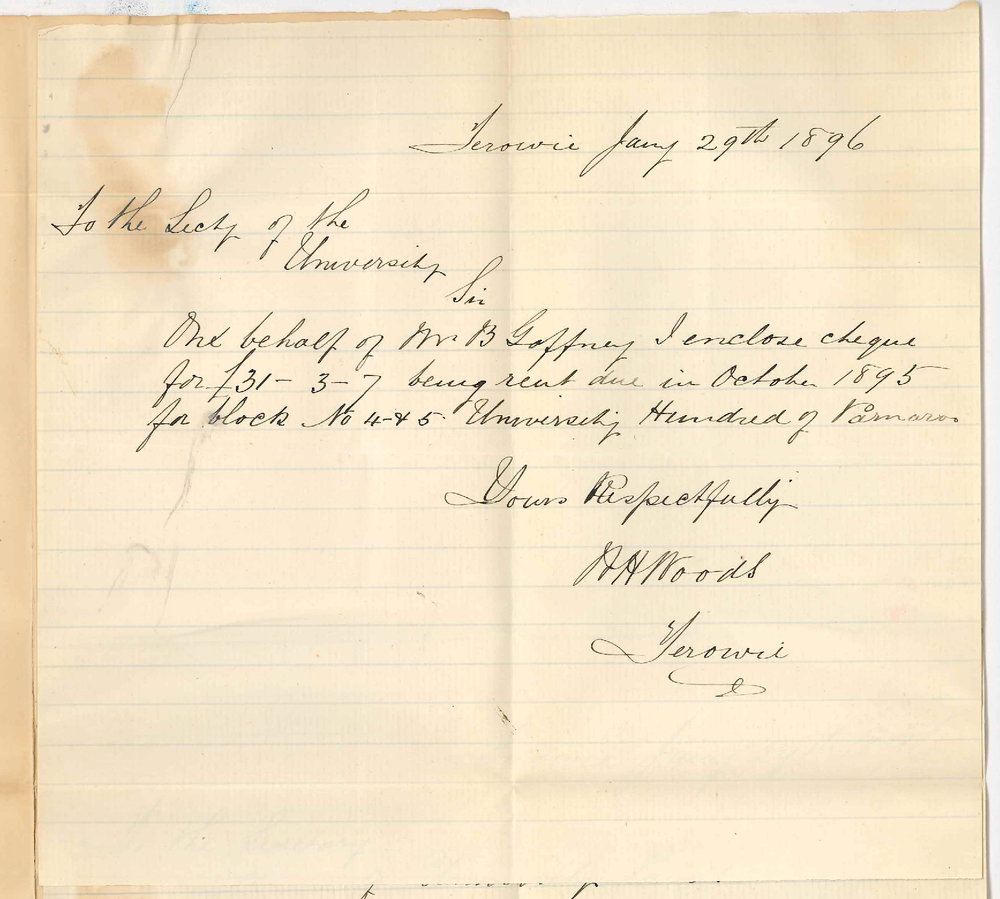 Terowie Jany 29th 1896
To the Secty of the
University
Sir
On behalf of Mr B Gaffney I enclose cheque
for £31-3-7 being rent due in October 1895
for block No 4 & 5 University Hundred of Parnaroo
Yours Respectfully
W H Woods
Terowie